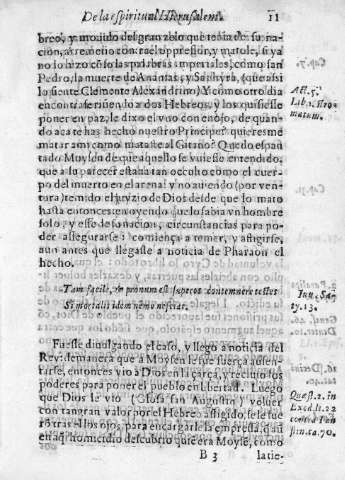 De la espiritual Hierusalem. 11
breo, y mouido del gran zelo que tenia de su na-
cion, arremetio con tael oppressor, y matole, si ya
no lo hizo cõ solas palabras imperiales, como san
Pedro, la muerte de Ananias, y Saphyra, (que assi
lo siente Clemente Alexandrino) Y como otro dia
encontrasse riñendo a dos Hebreos, y los quisiesse
poner en paz, le dixo el vno con enojo, de quan-
do aca te has hecho nuestro Principe? quieresme
matar a mi como mataste al Gitano? Quedo espan-
tado Moysen de que aquello se vuiesse entendido,
que a su parecer estaua tan occulto como el cuer-
po del muerto en el arena! y no auiendo (por ven-
tura) temido el juyzio de Dios desde que lo mato
hasta entonces: en oyendo que lo sabia vn hombre
solo, y esse de su nacion, circunstancias para po-
der assegurarse: comiença a temer, y afligirse,
aun antes que llegasse a noticia de Pharaon el
hecho.
Tam facile, & pronum est superos contemnere testes
Si mortalis idem nemo nesciat.
Fuesse diuulgando el caso, y llego a noticia del
Rey: de manera que a Moysen le fue fuerça ausen-
tarse, entonces vio a Dios en la çarça, y recibio los
poderes para poner el pueblo en libertad. Luego
que Dios le vio (Glosa san Augustin) voluer
con tan gran valor por el Hebreo afligido, se le fue
rõ tras ellos ojos, para encargarle la empresa, q̃ aũ
en aq̃l homicidio descubrio quiẽ era Moyse, como
B 3 latie-
Act. 5.
Lib. 1. stro-
matum.
Iuu. Sa-
ty. 13.
Quæst. 2. in
Exod. li. 22
contra Fau
stin. ca. 70.